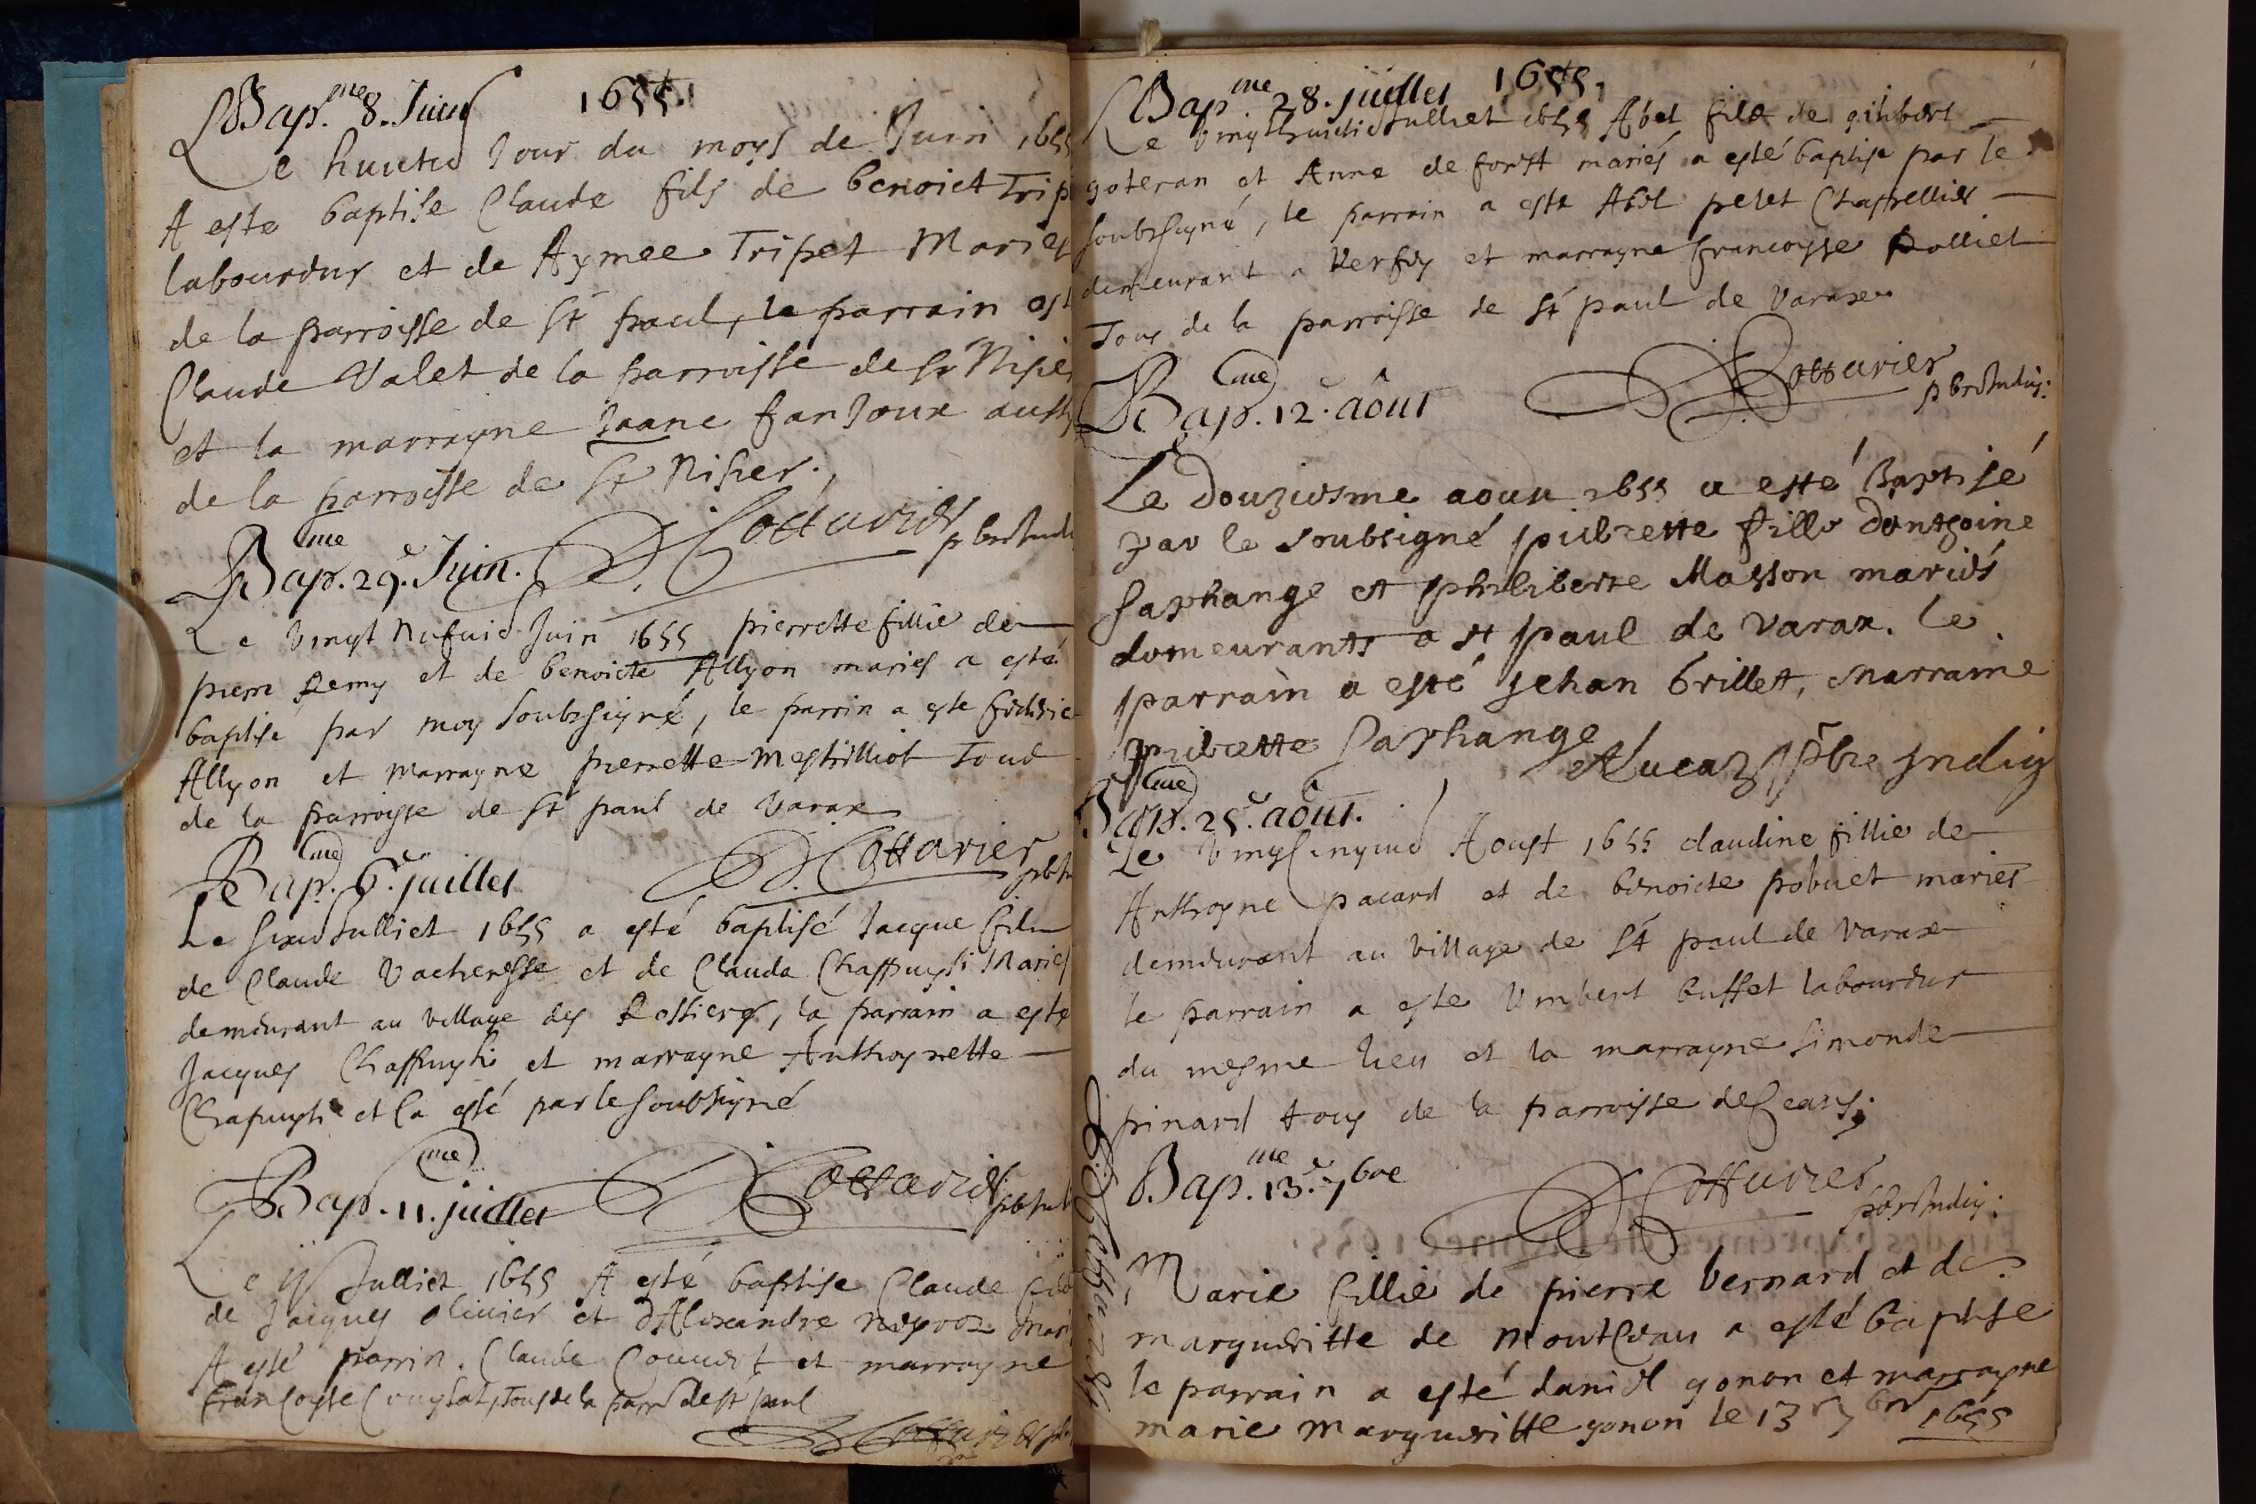 Bap.me 8. Juin 1655.
Le huictie Jour du moys de Juin 1655
A este baptise Claude fils de benoict Trip
laboureur et de Aymee Tripet Maries
de la parroisse de St paul, le parrain est
Claude Valet de la parroisse de St Nisie
et la marrayne Jeane fanJoux aussy
de la parroisse de St Nisier.
Cottarier pbr Indi
Bap.me 29.e Juin.
Le vingt Nefuie Juin 1655 pierrette fillie de
pierre Remy et de benoicte Allyon maries a esté
baptisé par moy soubzsigné, le parrin a este
Allyon et Marrayne pierrette Mestrilliot Tous
de la parroisse de St paul de Varax
Cottarier pbr
Bap.me 6.e juillet
Le sixie Julliet 1655 a esté baptisé Jacque filz
de Claude Vacheresse et de Clauda Chappuyssi Maries
demeurant au village des Rossieres, le parrain a este
Jacques et marrayne Anthoynette
et la esté par le soubsigné
Cottarier pbr
Bap.me 11. juillet
Le 11 Julliet 1655 A esté baptise Claude filz
de Jacques olivier et dAlexandre Mari
A esté parrin. Claude et marrayne
francoyse tous de la parr de st paul
Cottarier
Bap.me 28. juillet 1655.
Le vingt huictie Julliet 1655 Abel filz de gilibert
goteran et Anne de forest mariés a esté baptise par le
soubzsigné, le parrain a este Abel petet Chappellier
demeurant a Verfey et marrayne francoysse Polliet
Tous de la parroisse de St paul de Varax
Cottarier pbr Indig:
Bap.me 12.e aôut
Le Douziesme aoust 1655 a esté Baptisé
par le soubsigné pierrette fille danthoine
Saphange et philiberte Masson mariés
demeurants a st paul de varax. le
parrain a esté Jehan brillet, Marraine
pierrette Saphange
Alucaz pbre Jndig
Bap.me 25.e aôut.
Le vingt cinquie Aoust 1655 claudine fillie de
Anthoyne pacard et de benoicte pobuet mariés
demeurant au village de St paul de Varax
le parrain a este Vmbert buffet laboureur
du mesme lieu et la marrayne simonde
pinard tous de la parroisse de Ceans;
Cottarier pbr Indig:
Bap.me 13.e 7bre
Marie fillie de pierre bernard et de
margueritte de Montceau a esté baptise
le parrain a esté daniel gonon et marrayne
marie margueritte gonon le 13 7bre 1655